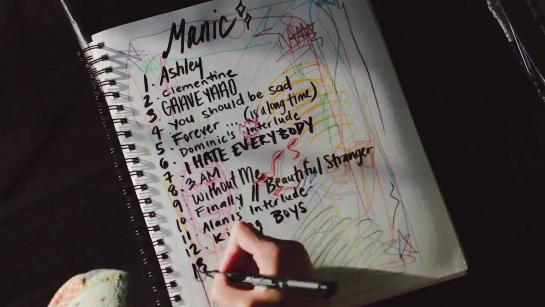 Manic
1. Ashley
2. clementine
3. GRAVEYARD
4. you should be sad
5. Forever ... (is a long time)
6. Dominic's Interlude
7. I HATE EVERYBODY
8. 3 AM
9. Without Me
10. Finally // Beautiful Stranger
11. Alanis' Interlude
12. BOYS
13